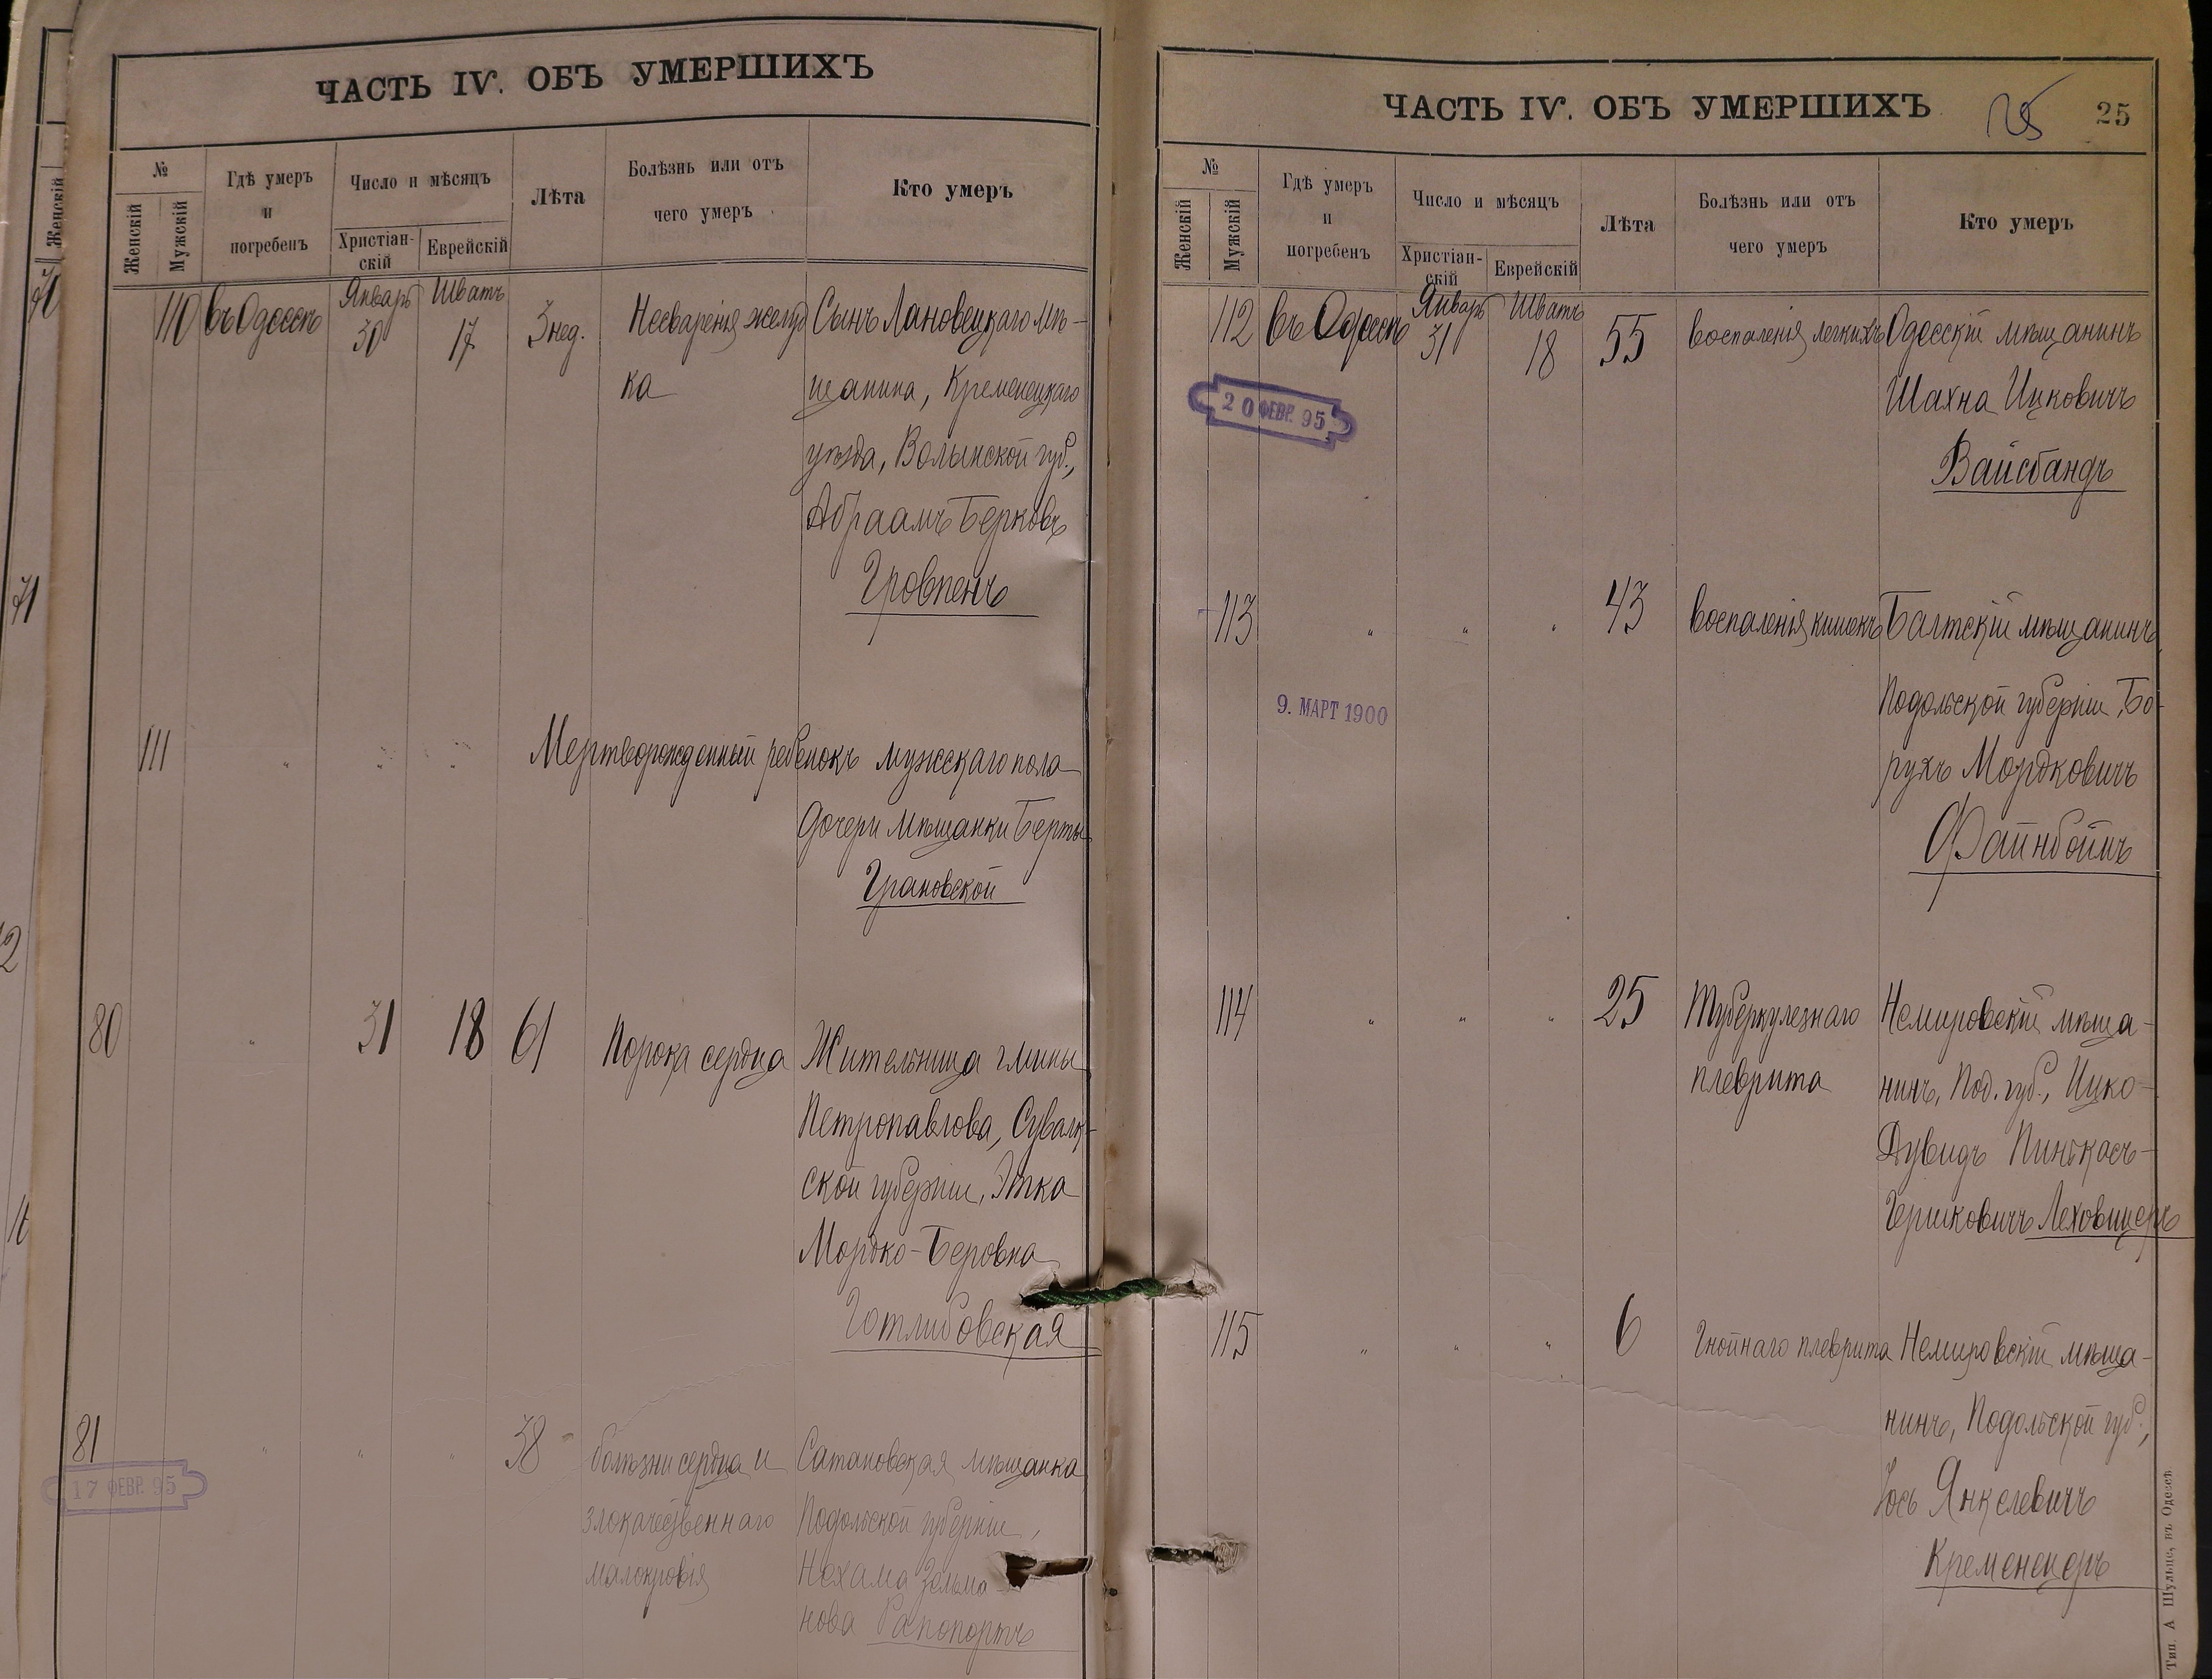 ЧАСТЬ IV. ОБЪ УМЕРШИХЪ
№
Женскій
Мужскій
Гдѣ умеръ
и
погребенъ
Число и мѣсяцъ
Христіан-
скій
Еврейскій
Лѣта
Болѣзнь или отъ
чего умеръ
Кто умеръ
110 въ Одессѣ Январь 30 Шватъ 17 3 нед. Несваренія желуд Сынъ Лановецкаго мѣ-
ка щанина, Кременецкаго
уѣзда, Волынской губ.,
Абраамъ Берковъ
Гровпенъ
111 " " " Мертворожденный ребенокъ мужскаго пола
дочери мѣщанки Берты
Грановской
80 " 31 18 61 Порока сердца Жительница гмины
Петропавлова, Сувалк-
ской губерніи, Этка
Мордко-Беровна
Готлибовская
81 " " " 38 болѣзни сердца и Сатановская мѣщанка
17 ФЕВР. 95
злокачественнаго Подольской губерніи,
малокровія Нехама Зельма-
нова Рапопортъ
ЧАСТЬ IV. ОБЪ УМЕРШИХЪ
25 25
№
Женскій
Мужскій
Гдѣ умеръ
и
погребенъ
Число и мѣсяцъ
Христіан-
скій
Еврейскій
Лѣта
Болѣзнь или отъ
чего умеръ
Кто умеръ
112 въ Одессѣ Январь 31 Шватъ 18 55 воспаленія легкихъ Одесскій мѣщанинъ
20 ФЕВР. 95
Шахна Ицковичъ
Вайсбандъ
113 " " " 43 воспаленія кишекъ Балтскій мѣщанинъ,
9. МАРТ 1900
Подольской губерніи, Бо-
рухъ Мордковичъ
Файнбоймъ
114 " " " 25 Туберкулезнаго Немировскій мѣща-
плеврита нинъ, Под. губ., Ицко-
Дувидъ Пинькасъ-
Гершковичъ Леховицеръ
115 " " " 6 Гнойнаго плеврита Немировскій мѣща-
нинъ, Подольской губ.,
Іось Янкелевичъ
Кременецеръ
Тип. А Шульце, въ Одессѣ
Женскій
71